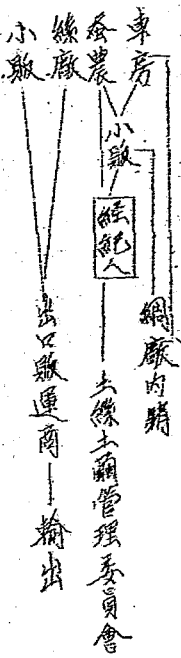 車房
蚕農
絲廠
小販
小販
經紀人
綢廠內銷
土絲土繭管理委員會
出口販運商
輸出